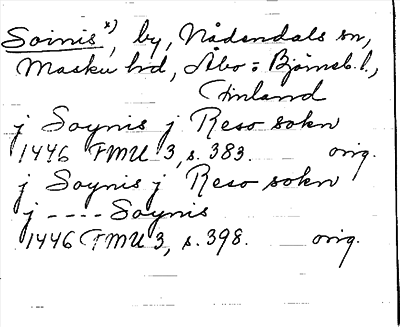 Soinis x), by, Nådendals sn,
Masku hd, Åbo = Björneb. l.,
Finland
j Soynis j Reso sokn
1446 FMU 3, s. 383. orig.
j Soynis j Reso sokn
j ---- Soynis
1446 FMU 3, s. 398. orig.